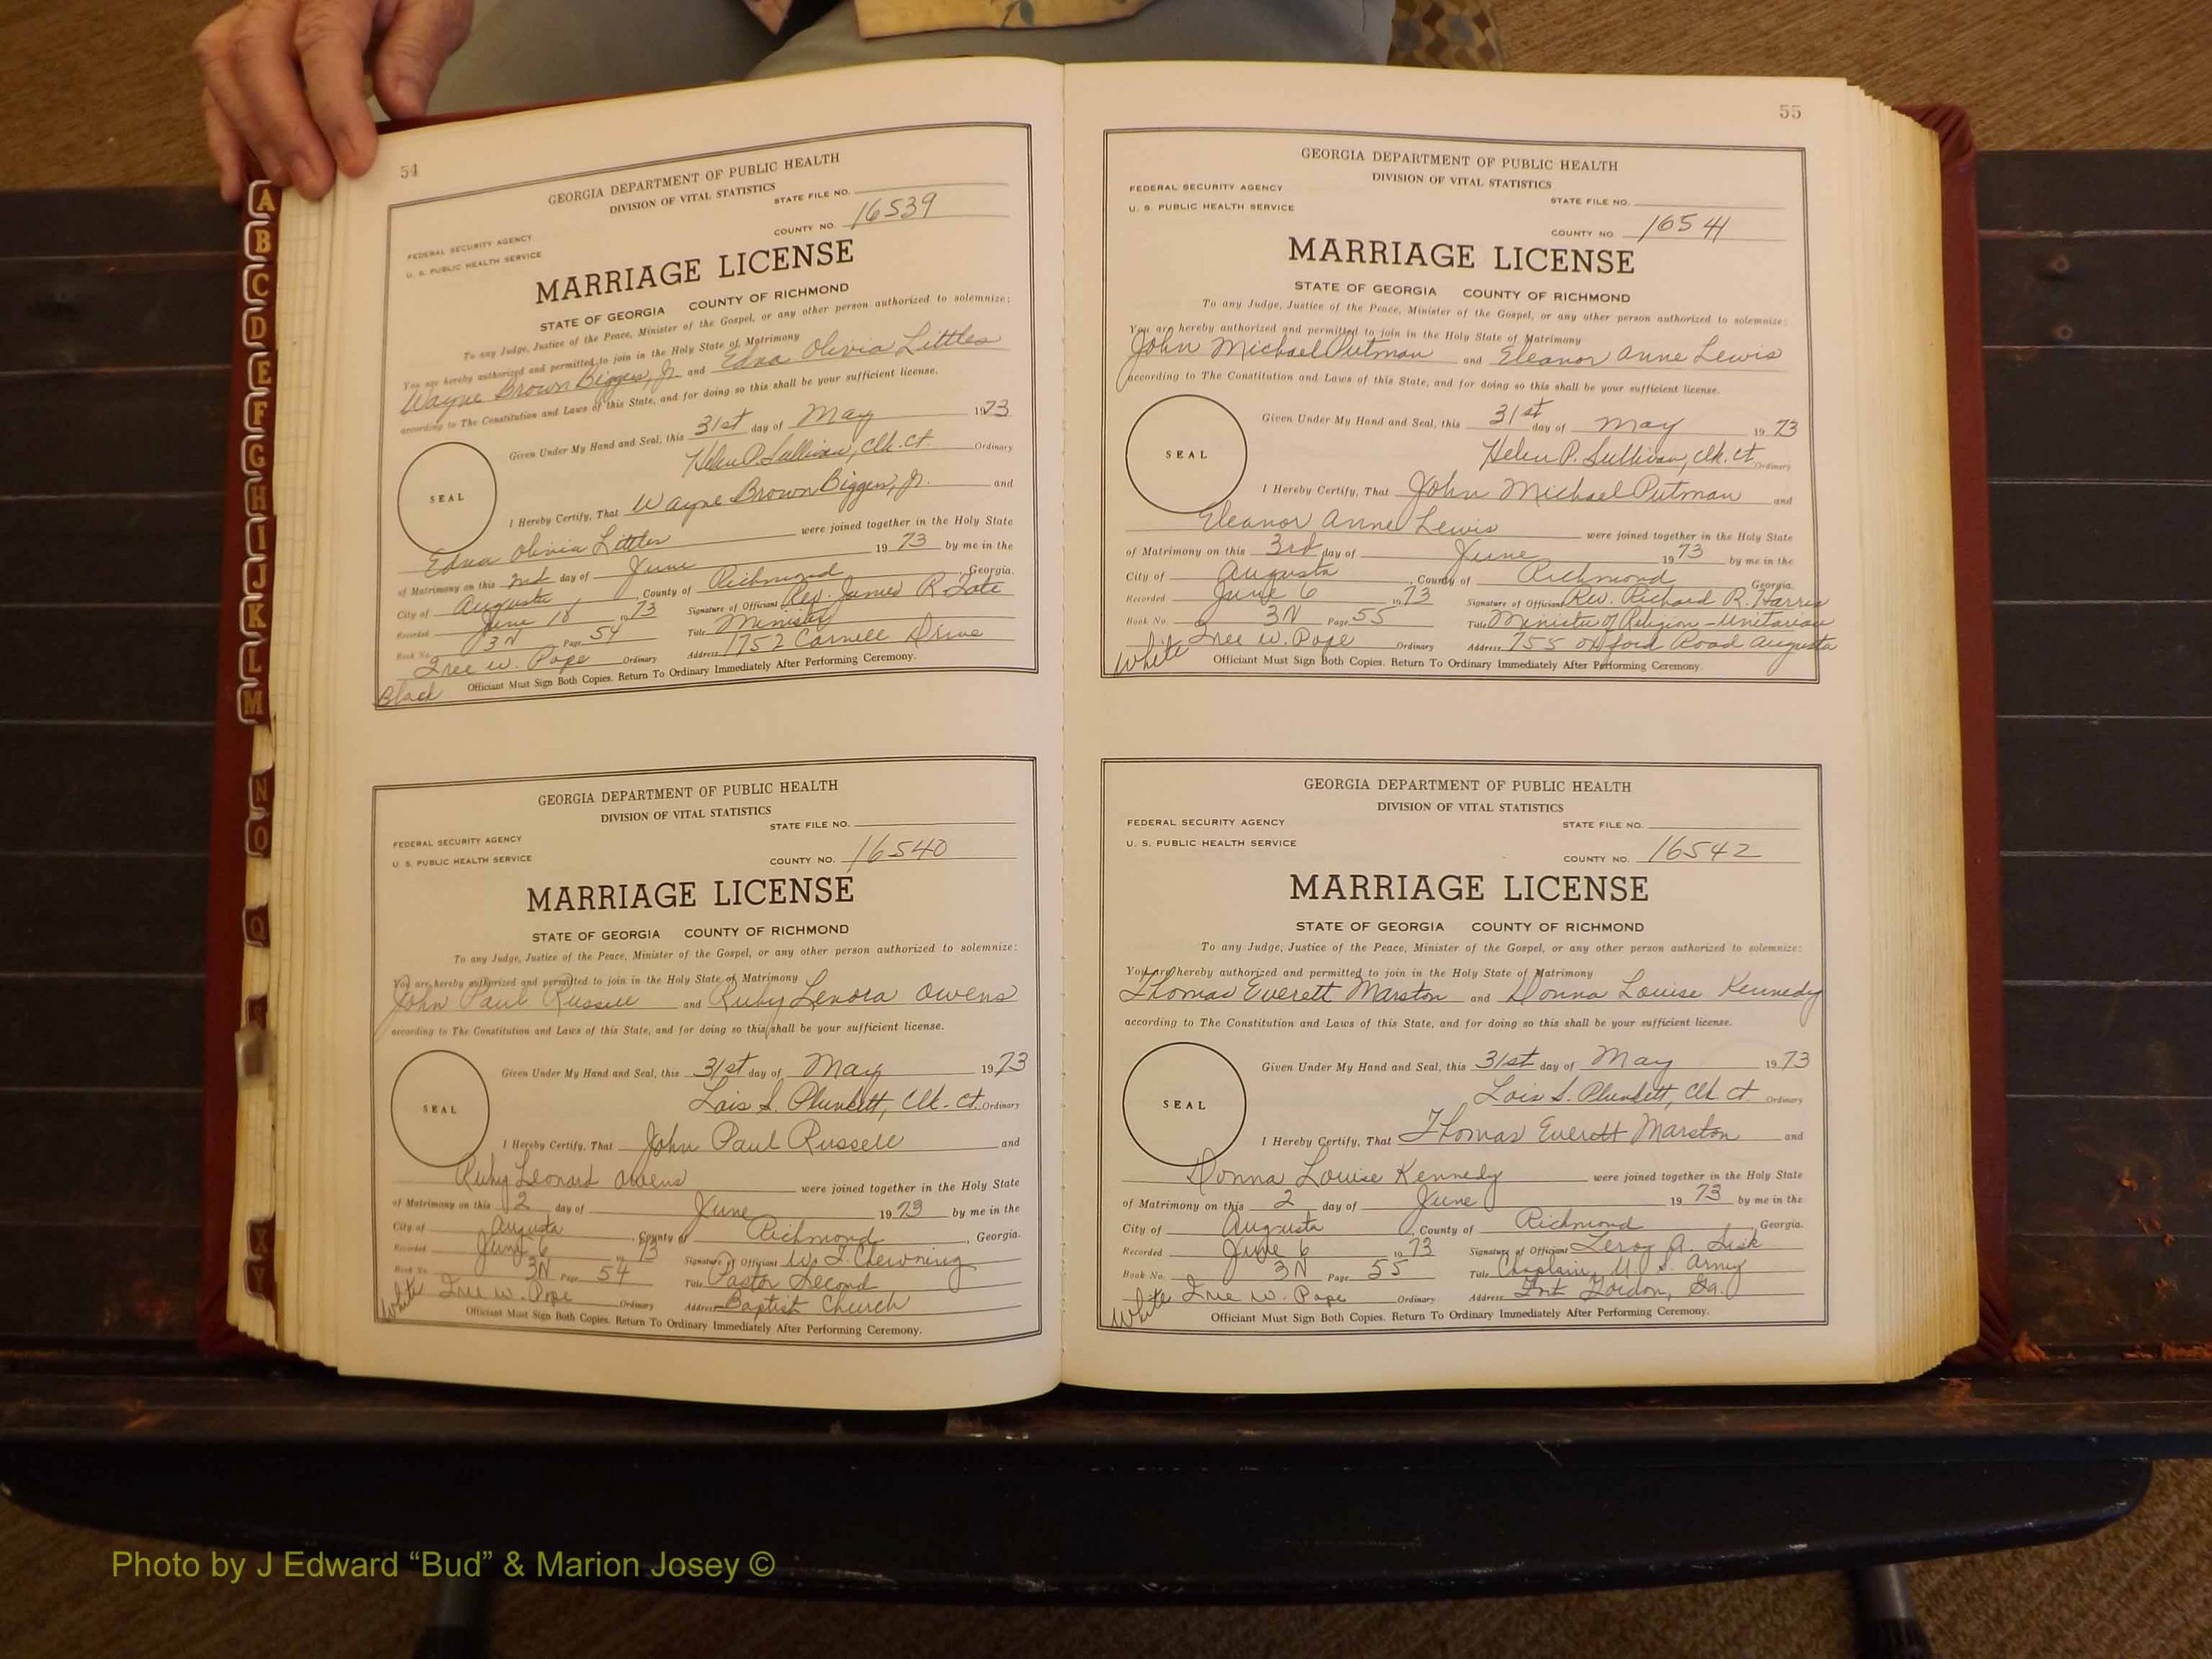 A
B
C
D
E
F
G
H
I
J
K
L
M
N
O
Q
S
X
Y
54
GEORGIA DEPARTMENT OF PUBLIC HEALTH
DIVISION OF VITAL STATISTICS
STATE FILE NO.
FEDERAL SECURITY AGENCY
U. S. PUBLIC HEALTH SERVICE
COUNTY NO. 16539
MARRIAGE LICENSE
STATE OF GEORGIA COUNTY OF RICHMOND
To any Judge, Justice of the Peace, Minister of the Gospel, or any other person authorized to solemnize:
You are hereby authorized and permitted to join in the Holy State of Matrimony
Wayne Brown Biggers, Jr. and Edna Olivia Littles
according to The Constitution and Laws of this State, and for doing so this shall be your sufficient license.
Given Under My Hand and Seal, this 31st day of May 1973
Helen P. Sullivan, Clk. Ct. Ordinary
SEAL
I Hereby Certify, That Wayne Brown Biggers, Jr. and
Edna Olivia Littles were joined together in the Holy State
of Matrimony on this 2nd day of June 1973 by me in the
City of Augusta, County of Richmond, Georgia.
Recorded June 18 1973 Signature of Officiant Rev. James R.
Book No. 3N Page 54 Title Minister
Ordinary Address 1752 Drive
W. Pope
Black Officiant Must Sign Both Copies. Return To Ordinary Immediately After Performing Ceremony.
GEORGIA DEPARTMENT OF PUBLIC HEALTH
DIVISION OF VITAL STATISTICS
STATE FILE NO.
FEDERAL SECURITY AGENCY
U. S. PUBLIC HEALTH SERVICE
COUNTY NO. 16540
MARRIAGE LICENSE
STATE OF GEORGIA COUNTY OF RICHMOND
To any Judge, Justice of the Peace, Minister of the Gospel, or any other person authorized to solemnize:
You are hereby authorized and permitted to join in the Holy State of Matrimony
John Paul Russell and Ruby Lenora Owens
according to The Constitution and Laws of this State, and for doing so this shall be your sufficient license.
Given Under My Hand and Seal, this 31st day of May 1973
Lois S. Plunkett, Clk. Ct. Ordinary
SEAL
I Hereby Certify, That John Paul Russell and
Ruby Leonard Owens were joined together in the Holy State
of Matrimony on this 2 day of June 1973 by me in the
City of Augusta, County of Richmond, Georgia.
Recorded June 6 1973 Signature of Officiant Chewning
Book No. 3N Page 54 Title Pastor Second
White W. Pope Ordinary Address Baptist Church
Officiant Must Sign Both Copies. Return To Ordinary Immediately After Performing Ceremony.
55
GEORGIA DEPARTMENT OF PUBLIC HEALTH
DIVISION OF VITAL STATISTICS
FEDERAL SECURITY AGENCY
STATE FILE NO.
U. S. PUBLIC HEALTH SERVICE
COUNTY NO. 16541
MARRIAGE LICENSE
STATE OF GEORGIA COUNTY OF RICHMOND
To any Judge, Justice of the Peace, Minister of the Gospel, or any other person authorized to solemnize:
You are hereby authorized and permitted to join in the Holy State of Matrimony
John Michael Putman and Eleanor Anne Lewis
according to The Constitution and Laws of this State, and for doing so this shall be your sufficient license.
Given Under My Hand and Seal, this 31st day of May 1973
Helen P. Sullivan, Clk. Ct. Ordinary
SEAL
I Hereby Certify, That John Michael Putman and
Eleanor Anne Lewis were joined together in the Holy State
of Matrimony on this 3rd day of June 1973 by me in the
City of Augusta, County of Richmond Georgia.
Recorded June 6 1973 Signature of Officiant Rev. Richard R. Harris
Book No. 3N Page 55 Title Minister of Religion - Unitarian
White W. Pope Ordinary Address 755 Oxford Road Augusta
Officiant Must Sign Both Copies. Return To Ordinary Immediately After Performing Ceremony.
GEORGIA DEPARTMENT OF PUBLIC HEALTH
DIVISION OF VITAL STATISTICS
FEDERAL SECURITY AGENCY
STATE FILE NO.
U. S. PUBLIC HEALTH SERVICE
COUNTY NO. 16542
MARRIAGE LICENSE
STATE OF GEORGIA COUNTY OF RICHMOND
To any Judge, Justice of the Peace, Minister of the Gospel, or any other person authorized to solemnize:
You are hereby authorized and permitted to join in the Holy State of Matrimony
Thomas Everett Marston and Donna Louise Kennedy
according to The Constitution and Laws of this State, and for doing so this shall be your sufficient license.
Given Under My Hand and Seal, this 31st day of May 1973
Lois S. Plunkett, Clk Ct. Ordinary
SEAL
I Hereby Certify, That Thomas Everett Marston and
Donna Louise Kennedy were joined together in the Holy State
of Matrimony on this 2 day of June 1973 by me in the
City of Augusta, County of Richmond, Georgia.
Recorded June 6 1973 Signature of Officiant Leroy A. Sisk
Book No. 3N Page 55 Title Chaplain, U. S. Army
White W. Pope Ordinary Address Fort Gordon, Ga.
Officiant Must Sign Both Copies. Return To Ordinary Immediately After Performing Ceremony.
Photo by J Edward “Bud” & Marion Josey ©